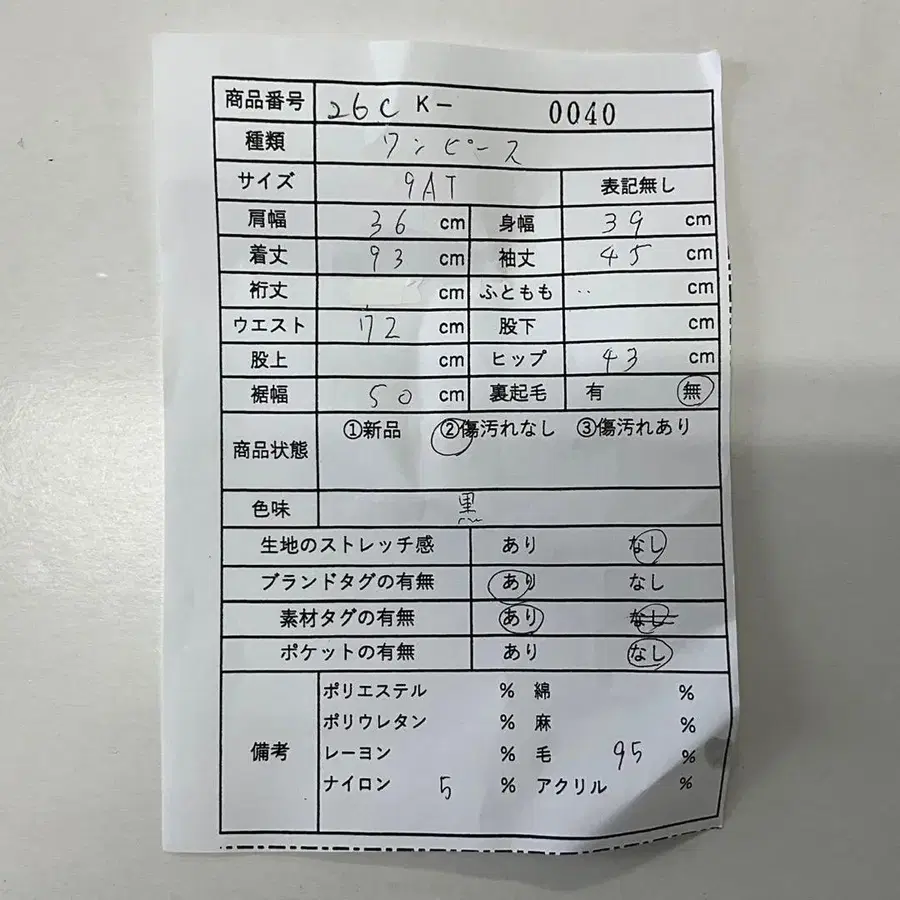 商品番号 26C K- 0040
種類 ワンピース
サイズ 9AT 表記無し
肩幅 36 cm 身幅 39 cm
着丈 93 cm 袖丈 45 cm
裄丈 cm ふともも cm
ウエスト 72 cm 股下 cm
股上 cm ヒップ 43 cm
裾幅 50 cm 裏起毛 有 無
商品状態 ①新品 ②傷汚れなし ③傷汚れあり
色味 黒
生地のストレッチ感 あり なし
ブランドタグの有無 あり なし
素材タグの有無 あり なし
ポケットの有無 あり なし
備考
ポリエステル % 綿 %
ポリウレタン % 麻 %
レーヨン % 毛 95 %
ナイロン 5 % アクリル %